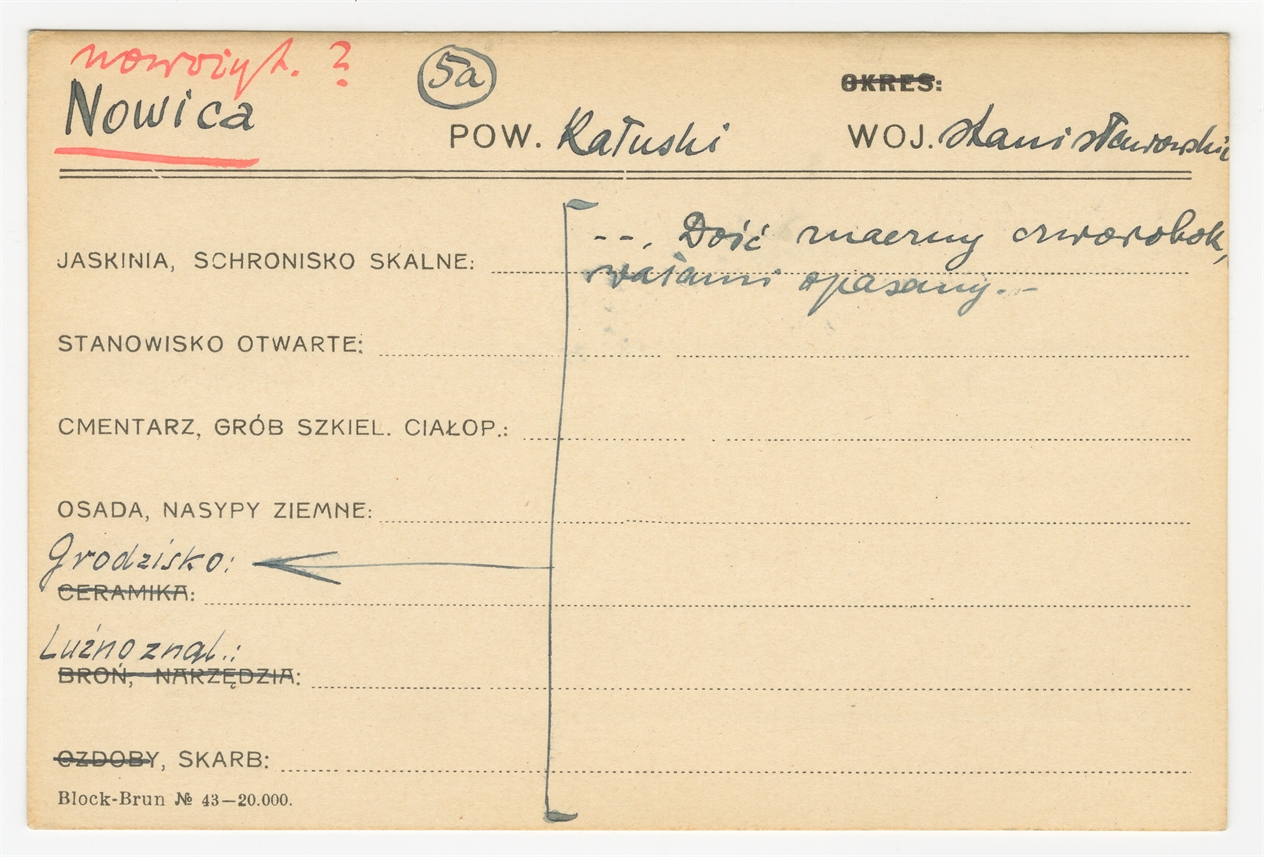 nowożyt. ?
5a
OKRES:
Nowica
POW. Kałuski
WOJ. Stanisławowskie
-- . Dość znaczny czworobok,
wałami opasany.--
JASKINIA, SCHRONISKO SKALNE:
STANOWISKO OTWARTE:
CMENTARZ, GRÓB SZKIEL. CIAŁOP.:
OSADA, NASYPY ZIEMNE:
Grodzisko:
CERAMIKA:
Luźno znal.:
BROŃ, NARZĘDZIA:
OZDOBY, SKARB:
Block-Brun № 43—20.000.